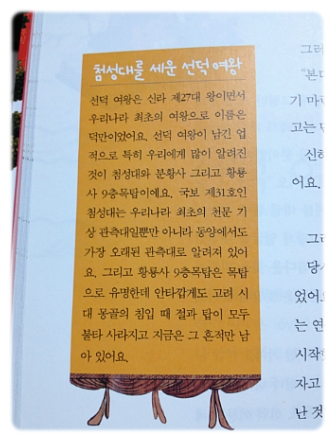 첨성대를 세운 선덕 여왕
선덕 여왕은 신라 제27대 왕이면서
우리나라 최초의 여왕으로 이름은
덕만이었어요. 선덕 여왕이 남긴 업
적으로 특히 우리에게 많이 알려진
것이 첨성대와 분황사 그리고 황룡
사 9층목탑이에요. 국보 제31호인
첨성대는 우리나라 최초의 천문 기
상 관측대일뿐만 아니라 동양에서도
가장 오래된 관측대로 알려져 있어
요. 그리고 황룡사 9층목탑은 목탑
으로 유명한데 안타깝게도 고려 시
대 몽골의 침입 때 절과 탑이 모두
불타 사라지고 지금은 그 흔적만 남
아 있어요.
그러
"본디
기 마
고는
신하
어요.
그르
당시
었어요
는 연
시작
자고
난 것